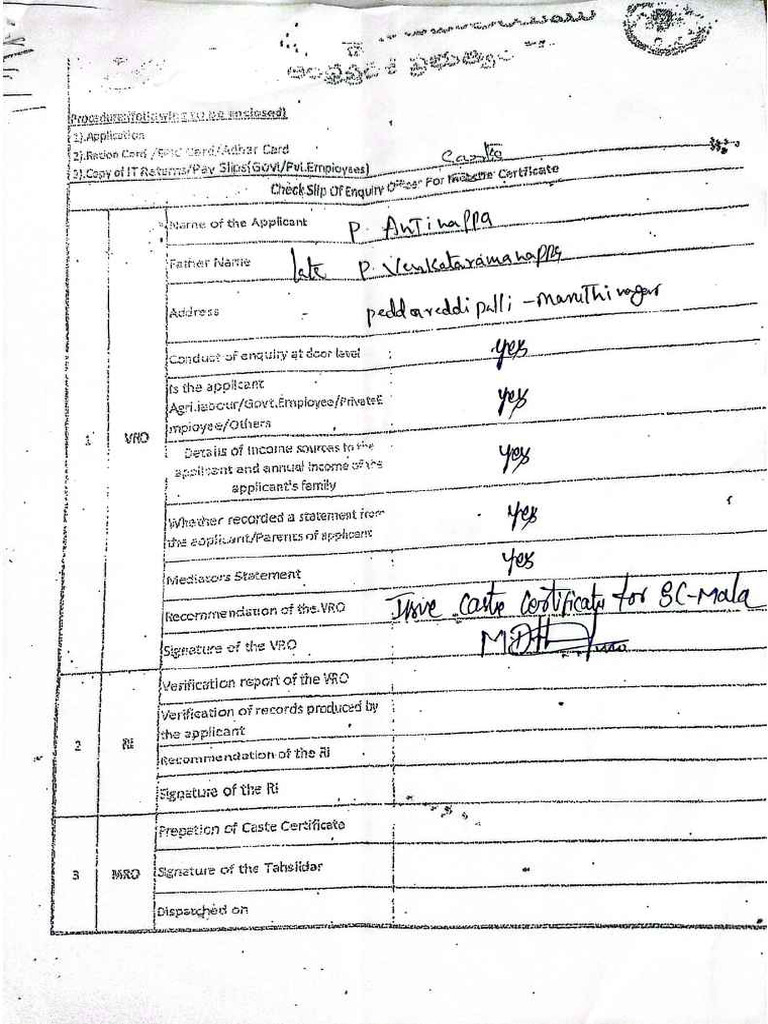 Procedure(following to be enclosed)
1).Application
2).Ration Card /EPIC Card/Adhar Card
3).Copy of IT Returns/Pay Slips(Govt/Pvt.Employees)
Caste
Check Slip Of Enquiry Officer For Income Certificate
1 VRO
Name of the Applicant P. Anjinappa
Father Name late P. Venkataramanappa
Address peddareddipalli - Maruthinagar
Conduct of enquiry at door level : yes
Is the applicant
Agri.labour/Govt.Employee/PrivateE
mployee/Others : yes
Details of Income sources to the
applicant and annual income of the
applicant's family yes
Whether recorded a statement from
the applicant/Parents of applicant yes
Mediators Statement yes
Recommendation of the VRO Issue Caste Certificate for SC-Mala
Signature of the VRO
2 RI
Verification report of the VRO
Verification of records produced by
the applicant
Recommendation of the RI
Signature of the RI
3 MRO
Prepation of Caste Certificate
Signature of the Tahsildar
Dispatched on